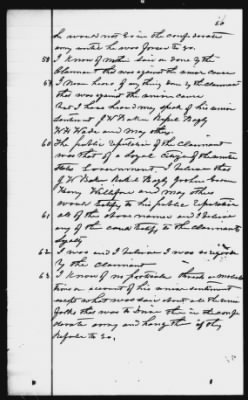 56
he would not go in the confederate
army until he was forced to go.
58 I know of nothing said or done by the
Claimant that was against the union cause
59 I never knew of any thing done by the claimant
that was against the union cause
but I have heard many speak of his union
sentiment J W Baker Rebel Bagly
W H Wade and many others.
60 The public reputation of the Claimant
was that of a loyal Citizen of the united
States Government. I believe that
J W Baker Rebel Bagly
Henry and many others
would testify to his public reputation
61 all of the above names and I believe
any of the could testify to the claimants
loyalty
62 I was and I believe I was so regarded
by the claimant
63 I know of no particular threats or molesta
tions on account of his union sentiment
except what was said about all the union
folks that was to drive them in the confe
derate army and hang them if they
refused to go.